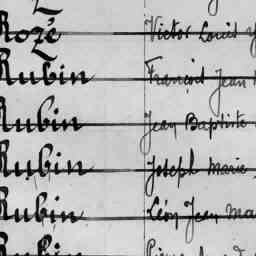 Rozé Victor Louis
Rubin François Jean
Rubin Jean Baptiste
Rubin Joseph Marie
Rubin Léon Jean Ma
Rubin